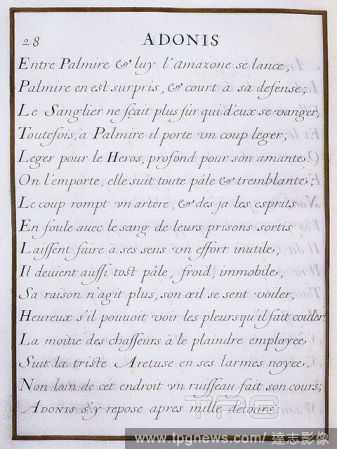 28
ADONIS
Entre Palmire & luy l'amazone se lance,
Palmire en est surpris, & court à sa defense;
Le Sanglier ne sçait plus sur qui d'eux se vanger,
Toutefois, à Palmire il porte vn coup leger,
Leger pour le Heros, profond pour son amante,
On l'emporte, elle suit toute pâle & tremblante,
Le coup rompt vn artere, & des ja les esprits
En foule auec le sang de leurs prisons sortis
Laissent faire à ses sens vn effort inutile,
Il deuient aussi tost pâle, froid, immobile,
Sa raison n'agit plus, son œil se sent voiler,
Heureux s'il pouuoit voir les pleurs qu'il fait couler
La moitie des chasseurs à le plaindre employee
Suit la triste Aretuse en ses larmes noyee.
Non loin de cet endroit vn ruisseau fait son cours;
ADONIS s'y repose apres mille detours;
www.tpgnews.com/ 達志影像